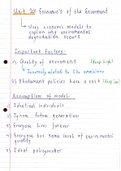 Unit 20 Economics of the Environment
↳ Uses economic models to
explain why environmental
degradation occurs
Important factors:
1) Quality of environment (Keep high)
↳ Inversely related to the emissions
2) Abatement policies have a cost (Keep low)
Assumption of model:
1) Identical individuals
2) Ignore future generations
3) Everyone lives forever
4) Everyone has same level of environmental
quality
5) Ideal policymaker